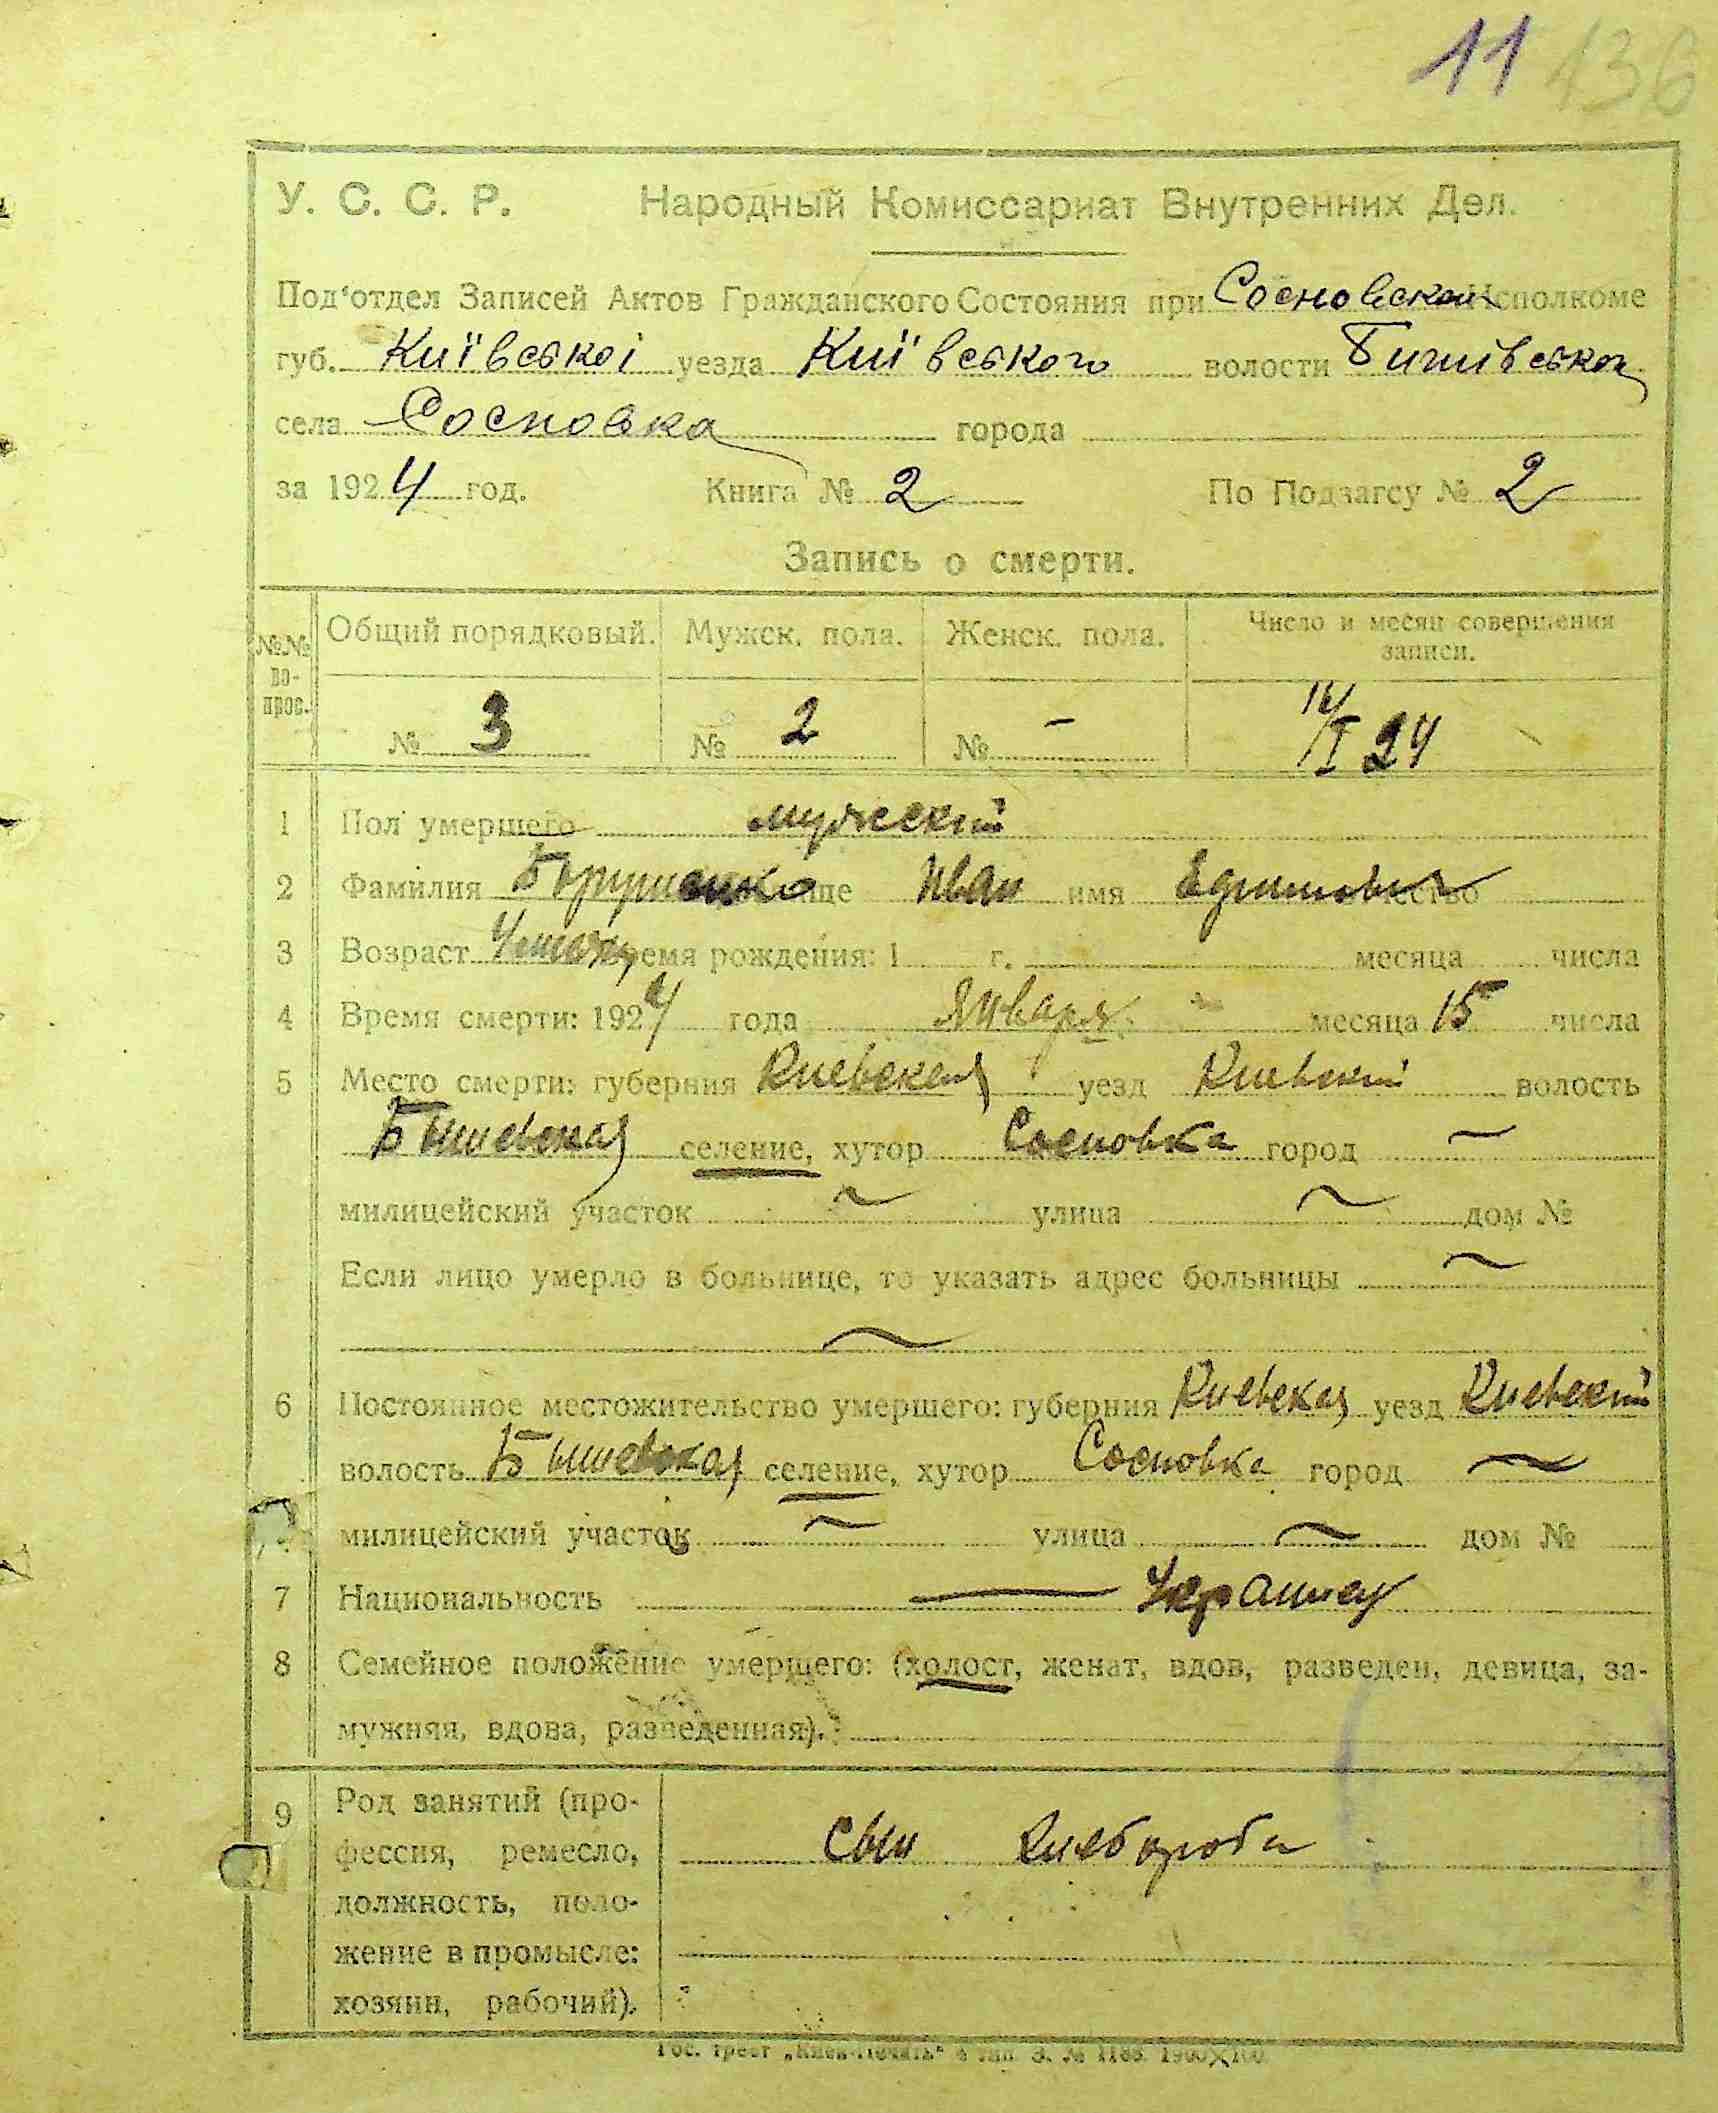 11 136
У. С. С. Р. Народный Комиссариат Внутренних Дел.
Под'отдел Записей Актов Гражданского Состояния при Сосновском Исполкоме
губ. Київської уезда Київського волости Бишівської
села Сосновка города
за 1924 год. Книга № 2 По Подзагсу № 2
Запись о смерти.
№№ во-прос. Общий порядковый. Мужск. пола. Женск. пола. Число и месяц совершения записи.
№ 3 № 2 № - /I 24
1 Пол умершего мужеский
2 Фамилия Иван имя
3 Возраст время рождения: 1 г. месяца числа
4 Время смерти: 1924 года Января месяца 15 числа
5 Место смерти: губерния Киевская уезд Киевский волость
Бышевская селение, хутор Сосновка город ~
милицейский участок ~ улица ~ дом №
Если лицо умерло в больнице, то указать адрес больницы ~
~
6 Постоянное местожительство умершего: губерния Киевская уезд Киевский
волость Бышевская селение, хутор Сосновка город ~
милицейский участок ~ улица ~ дом №
7 Национальность — Украинец
8 Семейное положение умершего: (холост, женат, вдов, разведен, девица, за-
мужняя, вдова, разведенная).
9 Род занятий (про-
фессия, ремесло, сын хлебороба
должность, поло-
жение в промысле:
хозяин, рабочий).
Гос. трест „Киев-Печать" 1900×100